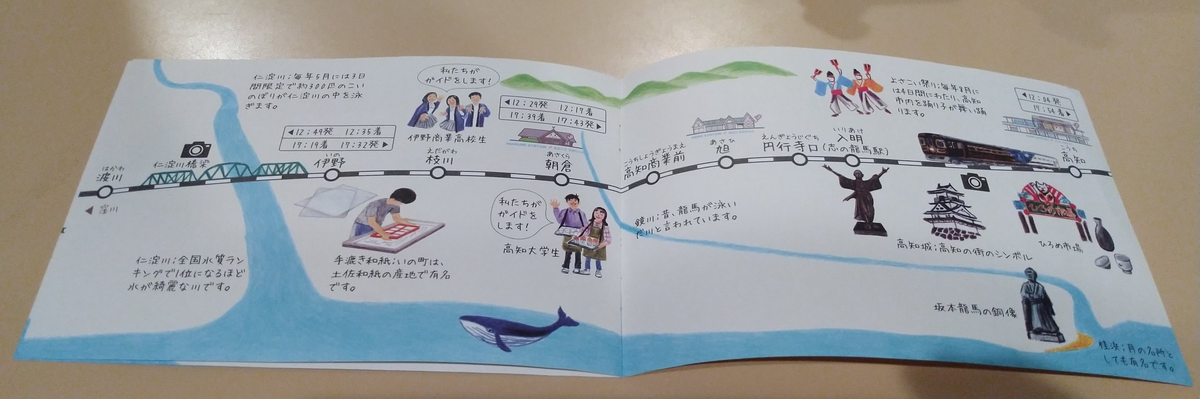 仁淀川：毎年5月には3日
間限定で約300匹のこい
のぼりが仁淀川の中を泳
ぎます。
私たちが
ガイドをします！
伊野商業高校生
◀12：49発 12：35着
17：19着 17：32発▶
◀12：29発 12：17着
17：39着 17：43発▶
仁淀川橋梁
はかわ
波川
◀窪川
いの
伊野
えだがわ
枝川
あさくら
朝倉
仁淀川：全国水質ラン
キングで1位になるほど
水が綺麗な川です。
手漉き和紙：いの町は、
土佐和紙の産地で有名
です。
私たちが
ガイドを
します！
高知大学生
よさこい祭り：毎年8月に
は4日間にわたり、高知
市内を踊り子が舞い踊
ります。
こうちしょうぎょうまえ
高知商業前
あさひ
旭
えんぎょうじぐち
円行寺口
いりあけ
入明
(志の龍馬駅)
こうち
高知
鏡川：昔、龍馬が泳い
だ川と言われています。
高知城：高知の街のシンボル
ひろめ市場
ひろめ市場
坂本龍馬の銅像
桂浜：月の名所と
しても有名です。